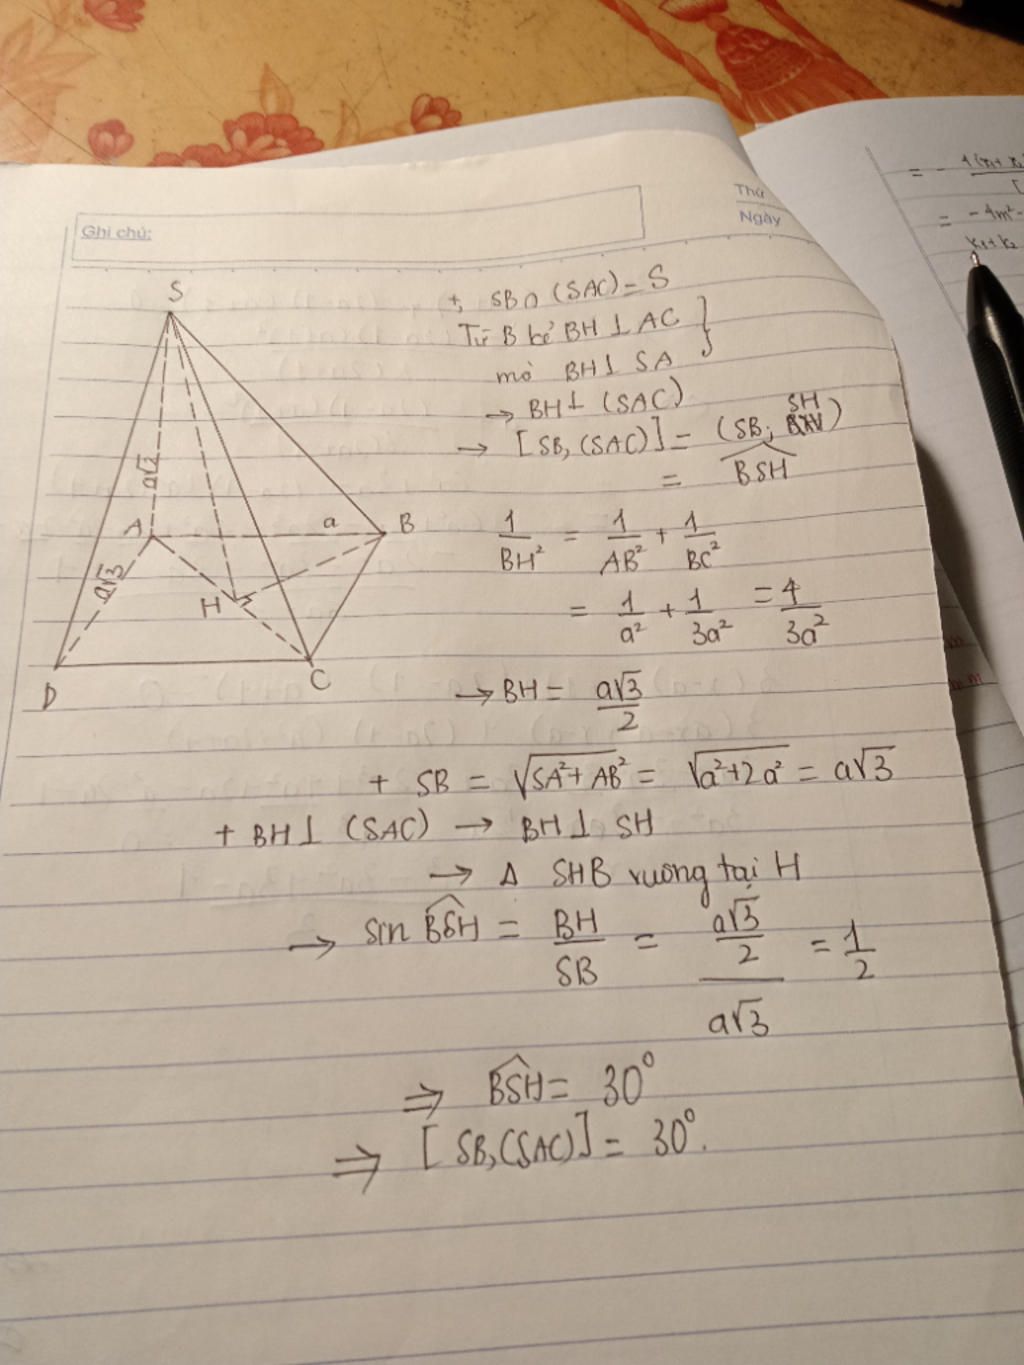 Ghi chú:
Thứ
Ngày
S
a√2
A
a
B
a√3
H
D
C
+, SB∩(SAC)=S
Từ B kẻ BH⊥AC }
mà BH⊥SA
→ BH⊥(SAC)
→ [SB,(SAC)] = (SB; SH)
= BSH
1/BH² = 1/AB² + 1/BC²
= 1/a² + 1/3a² = 4/3a²
→ BH = a√3/2
+ SB = √SA²+AB² = √a²+2a² = a√3
+ BH⊥(SAC) → BH⊥SH
→ Δ SHB vuông tại H
→ sin BSH = BH/SB = (a√3/2)/a√3 = 1/2
⇒ BSH = 30°
⇒ [SB,(SAC)] = 30°.
= -
= -4m²-
x₁+x₂